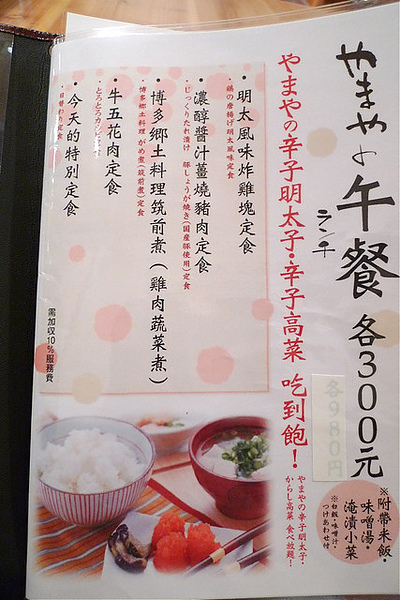 やまやの午餐 各300元
ランチ
各980円
※附帶米飯・
味噌湯・
淹漬小菜
※白飯・味噌汁・
つけあわせ付
やまやの辛子明太子・辛子高菜 吃到飽！
やまやの辛子明太子・
からし高菜 食べ放題！
・明太風味炸雞塊定食
鶏の唐揚げ明太風味定食
・濃醇醬汁薑燒豬肉定食
じっくりたれ漬け 豚しょうが焼き(国産豚使用)定食
・博多鄉土料理筑前煮（雞肉蔬菜煮）
博多郷土料理 がめ煮(筑前煮)定食
・牛五花肉定食
・今天的特別定食
・日替わり定食
需加収10%服務費